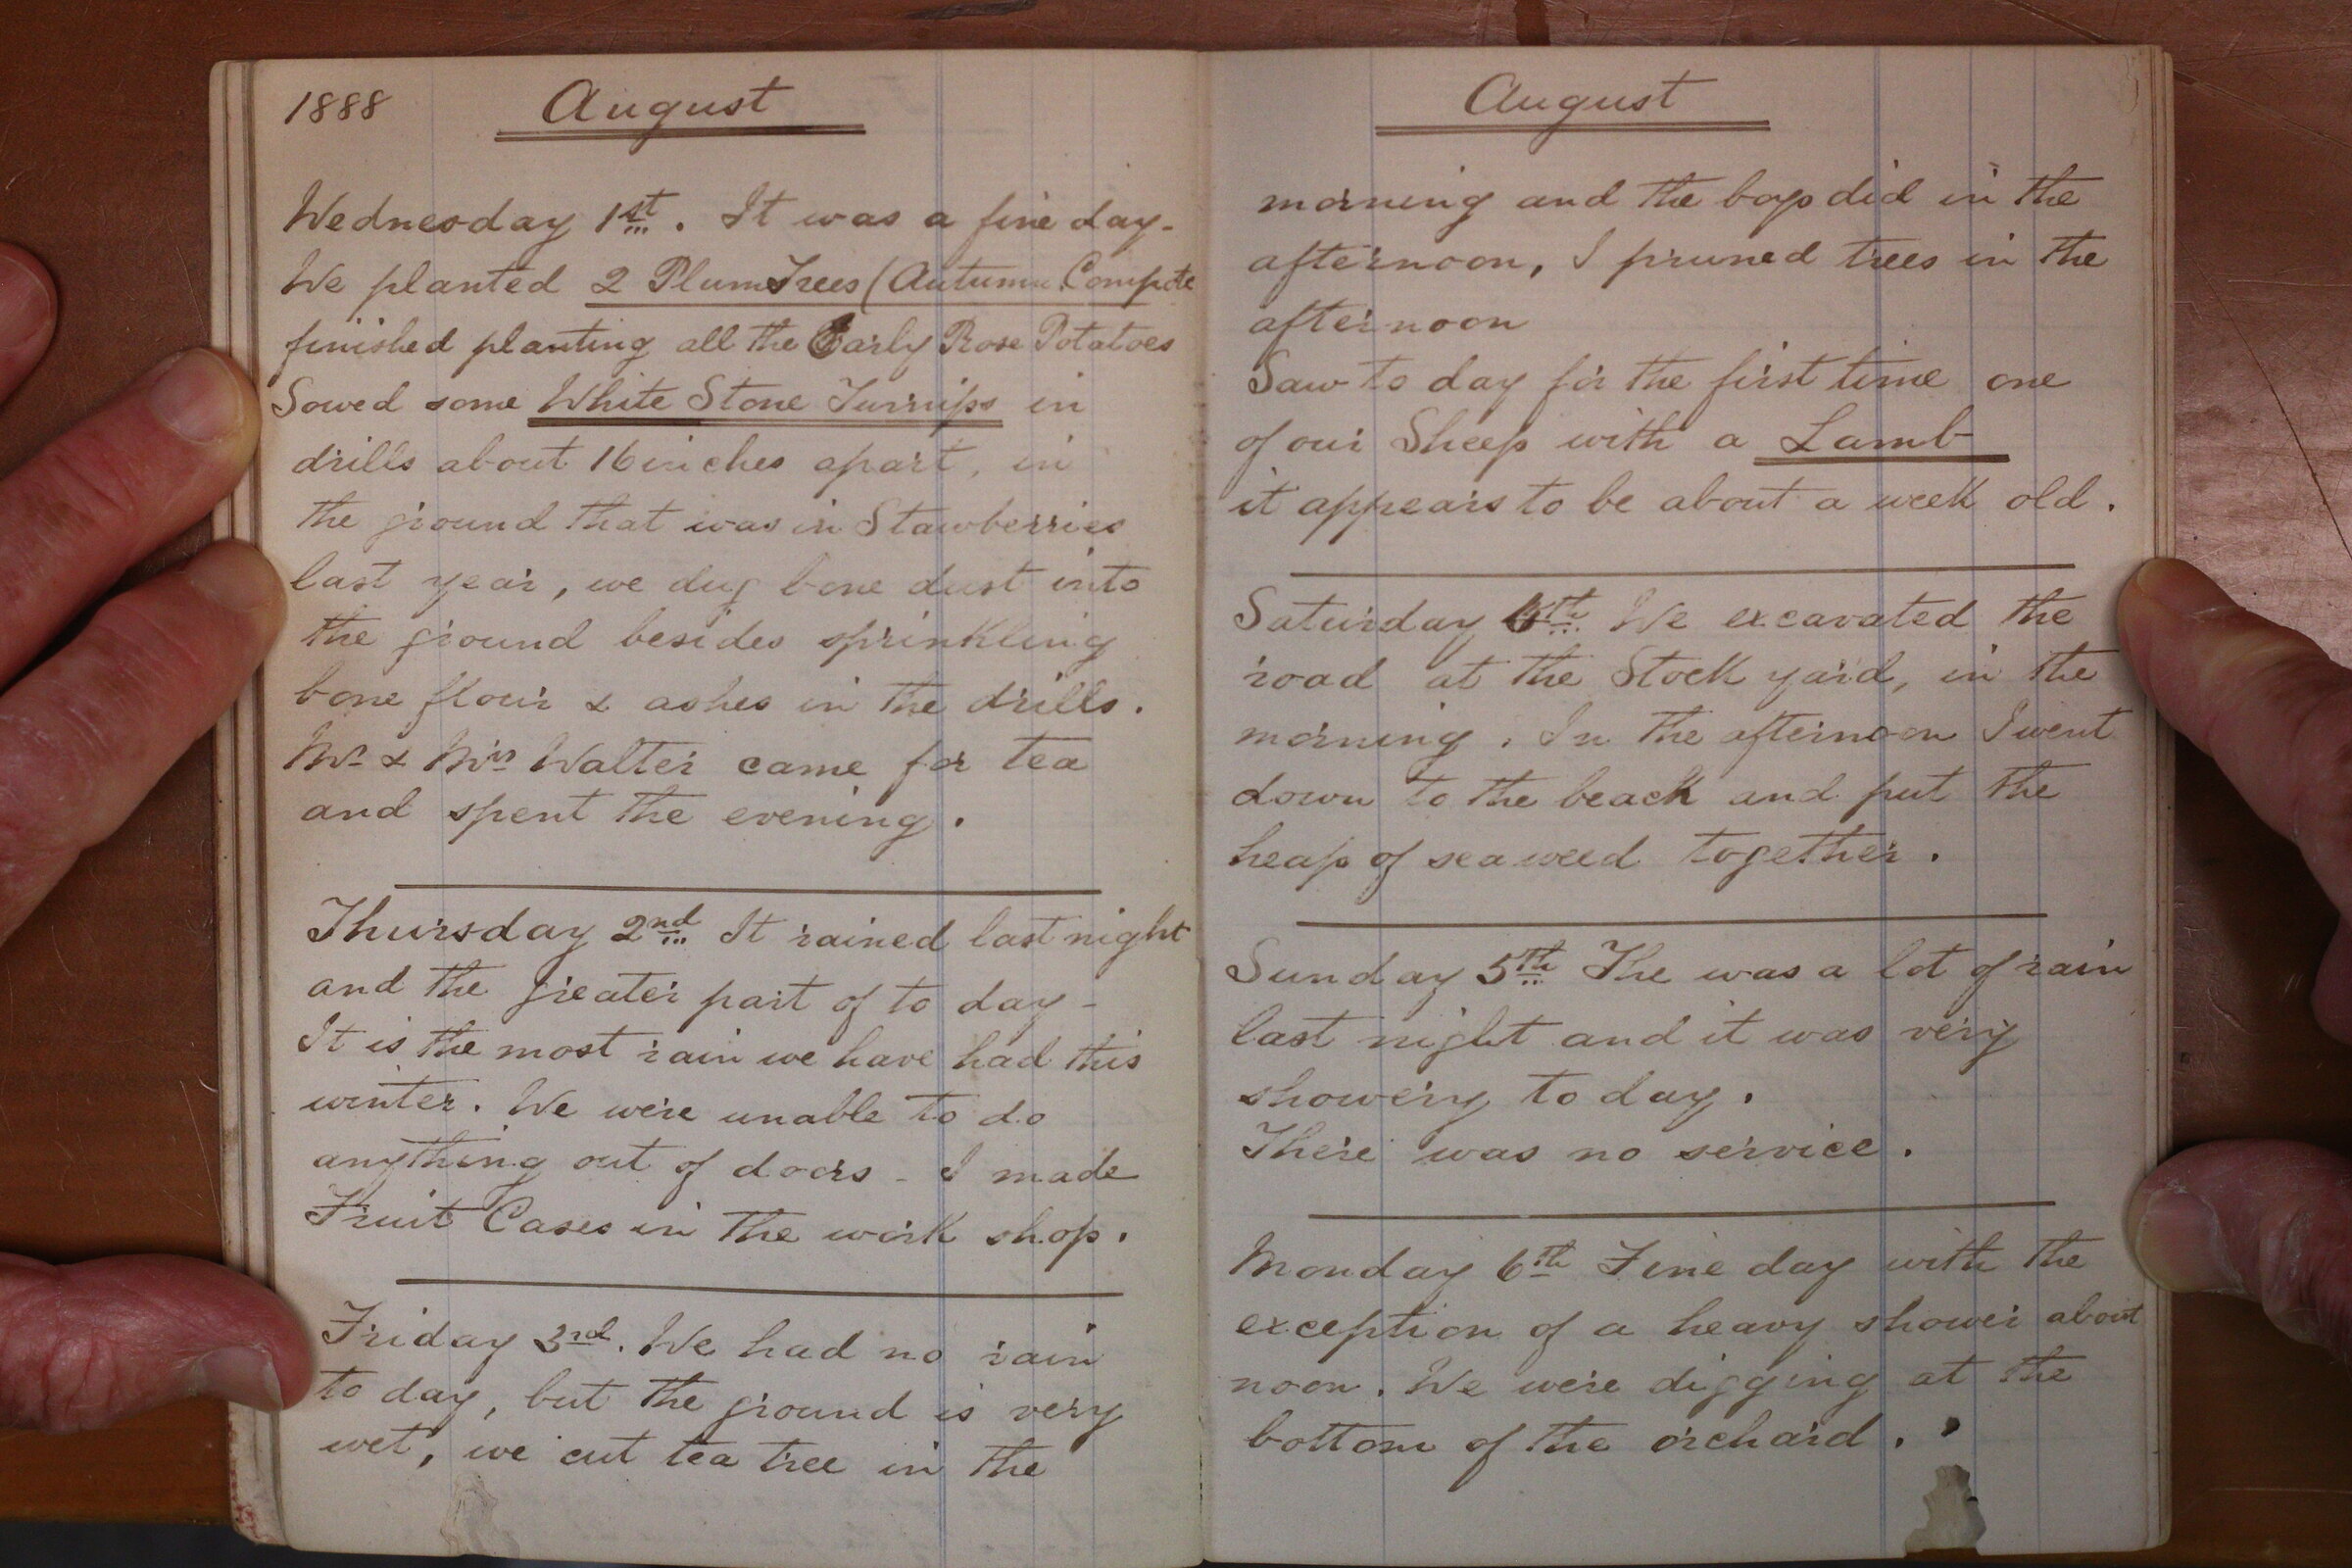 1888 August
Wednesday 1st. It was a fine day-
We planted 2 Plum Trees (Autumn Compote
finished planting all the Early Rose Potatoes
Sowed some White Stone Turnips in
drills about 16 inches apart, in
the ground that was in Stawberries
last year, we dug bone dust into
the ground besides sprinkling
bone flour & ashes in the drills.
Mr & Mrs Walter came for tea
and spent the evening.
Thursday 2nd It rained last night
and the greater part of to day-
It is the most rain we have had this
winter. We were unable to do
anything out of doors - I made
Fruit Cases in the work shop.
Friday 3rd. We had no rain
to day, but the ground is very
wet, we cut tea tree in the
August
morning and the boys did in the
afternoon, I pruned trees in the
afternoon
Saw to day for the first time one
of our Sheep with a Lamb
it appears to be about a week old.
Saturday 4th We excavated the
road at the Stock yard, in the
morning. In the afternoon I went
down to the beach and put the
heap of seaweed together.
Sunday 5th The was a lot of rain
last night and it was very
showery to day.
There was no service.
Monday 6th Fine day with the
exception of a heavy shower about
noon. We were digging at the
bottom of the orchard.